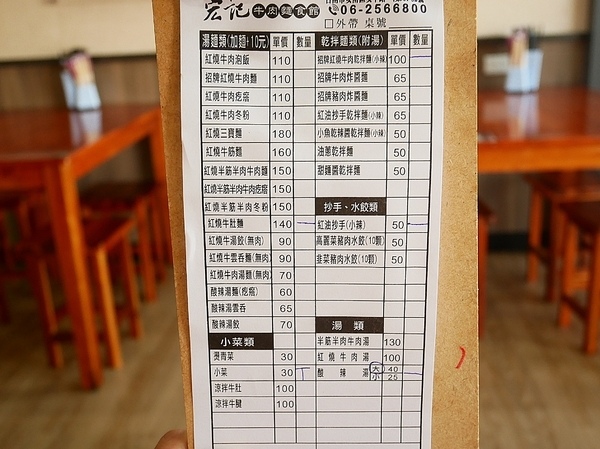 宏記牛肉麵食館
06-2566800
□外帶 桌號
湯麵類(加麵+10元) 單價 數量
紅燒牛肉泡飯 110
招牌紅燒牛肉麵 110
紅燒牛肉疙瘩 110
紅燒牛肉冬粉 110
紅燒三寶麵 180
紅燒牛筋麵 160
紅燒半筋半肉牛肉麵 150
紅燒半筋半肉牛肉疙瘩 150
紅燒半筋半肉冬粉 150
紅燒牛肚麵 140
紅燒牛湯餃(無肉) 90
紅燒牛雲吞麵(無肉) 90
紅燒牛肉湯麵(無肉) 70
酸辣湯麵(疙瘩) 60
酸辣湯雲吞 65
酸辣湯餃 70
小菜類
燙青菜 30
小菜 30 T
涼拌牛肚 100
涼拌牛腱 100
乾拌麵類(附湯) 單價 數量
招牌紅燒牛肉乾拌麵(小辣) 100
招牌牛肉炸醬麵 65
招牌豬肉炸醬麵 65
紅油抄手乾拌麵(小辣) 65
小魚乾辣醬乾拌麵(小辣) 50
油蔥乾拌麵 50
甜麵醬乾拌麵 50
抄手、水餃類
紅油抄手(小辣) 50
高麗菜豬肉水餃(10顆) 50
韭菜豬肉水餃(10顆) 50
湯類
半筋半肉牛肉湯 130
紅燒牛肉湯 100
酸辣湯 大 40
小 25